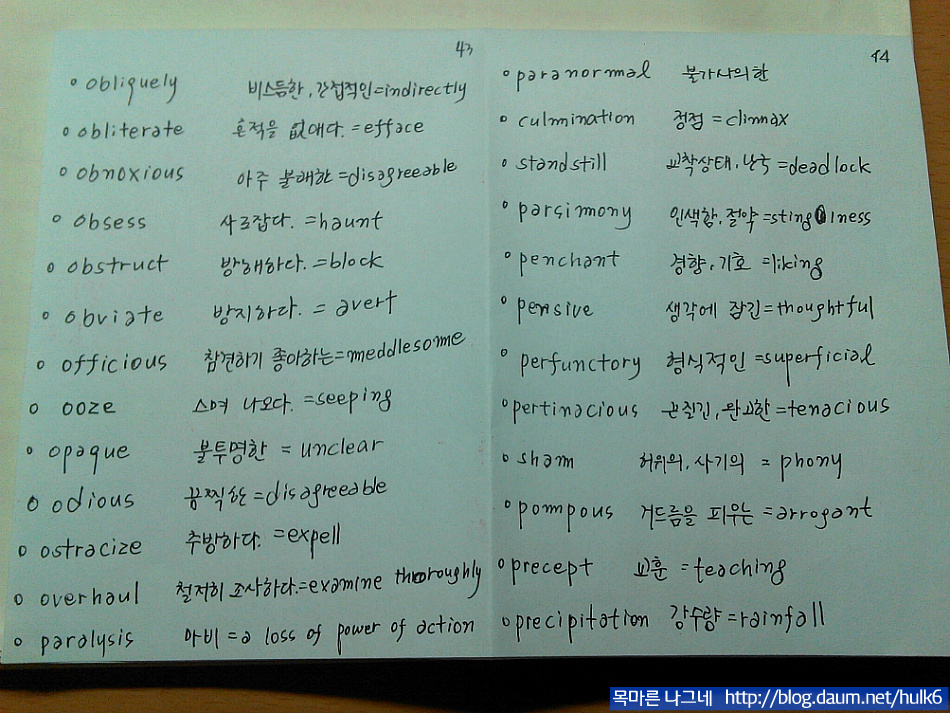 43
obliquely 비스듬한, 간접적인=indirectly
obliterate 흔적을 없애다. =efface
obnoxious 아주 불쾌한 =disagreeable
obsess 사로잡다. =haunt
obstruct 방해하다. =block
obviate 방지하다. = avert
officious 참견하기 좋아하는=meddlesome
ooze 스며 나오다. =seeping
opaque 불투명한 = unclear
odious 끔찍한 =disagreeable
ostracize 추방하다. =expell
overhaul 철저히 조사하다.=examine thoroughly
paralysis 마비 =a loss of power of action
44
paranormal 불가사의한
culmination 정점 =climax
standstill 교착상태, =deadlock
parsimony 인색함, 절약 =stinginess
penchant 경향, 기호 =liking
pensive 생각에 잠긴=thoughtful
perfunctory 형식적인 =superficial
pertinacious 끈질긴, 완고한 =tenacious
sham 허위의, 사기의 = phony
pompous 거드름을 피우는 =arrogant
precept 교훈 =teaching
precipitation 강수량=rainfall
목마른 나그네 http://blog.daum.net/hulk6